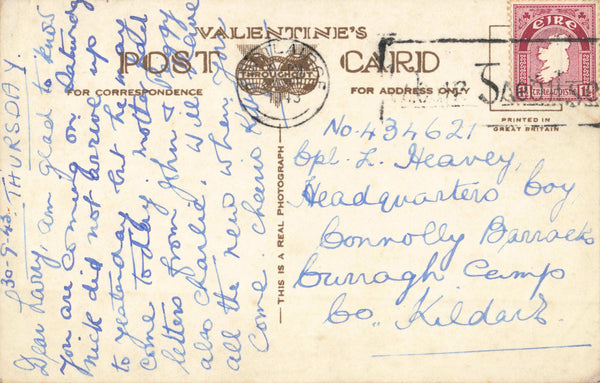 VALENTINE'S
POST CARD
THROUGHOUT
FOR CORRESPONDENCE
FOR ADDRESS ONLY
ÉIRE
PRINTED IN
GREAT BRITAIN
THIS IS A REAL PHOTOGRAPH
30-9-43. THURSDAY
Dear Larry, am glad to know
you are coming on Saturday
Mick did not arrive up
to yesterday but he may
come today.
letters from John &
also Charlie. Will have
all the news when you
Come. Cheerio
No. 434621
Cpl. L. Heavey,
Headquarters Coy
Connolly Barracks
Curragh Camp
Co. Kildare.